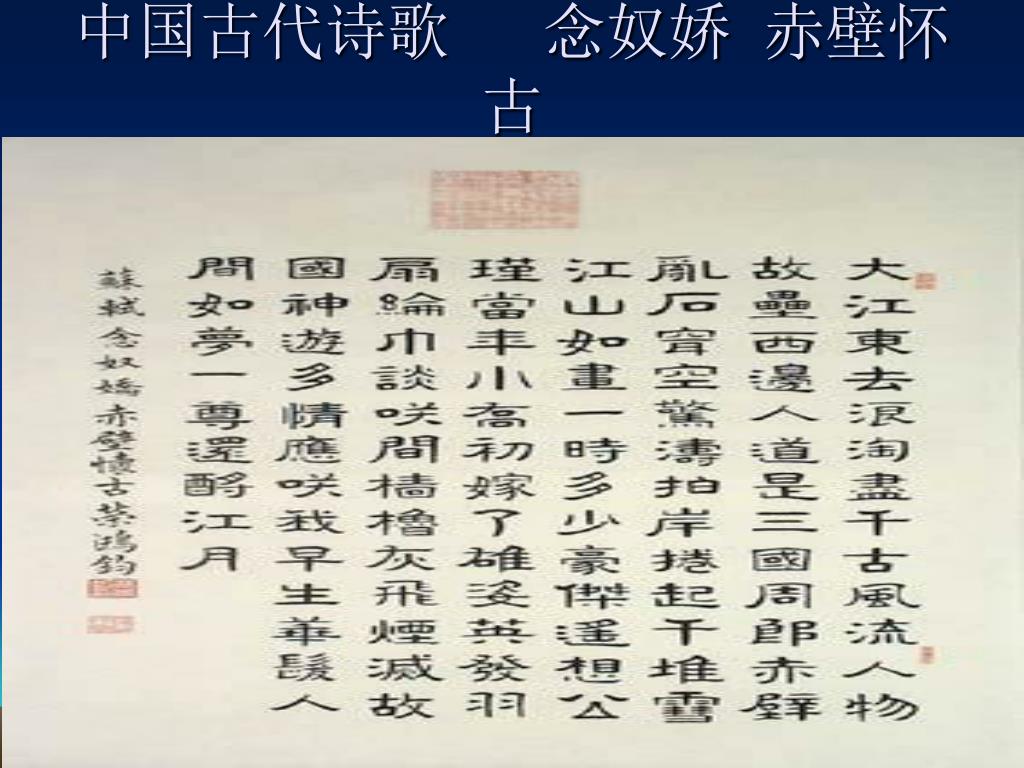 中国古代诗歌 念奴娇 赤壁怀
古
大江東去浪淘盡千古風流人物
故壘西邊人道是三國周郎赤壁
亂石穿空驚濤拍岸捲起千堆雪
江山如畫一時多少豪傑遥想公
瑾當年小喬初嫁了雄姿英發羽
扇綸巾談咲間檣櫓灰飛煙滅故
國神遊多情應咲我早生華髮人
間如夢一尊還酹江月
蘇軾念奴嬌赤壁懷古